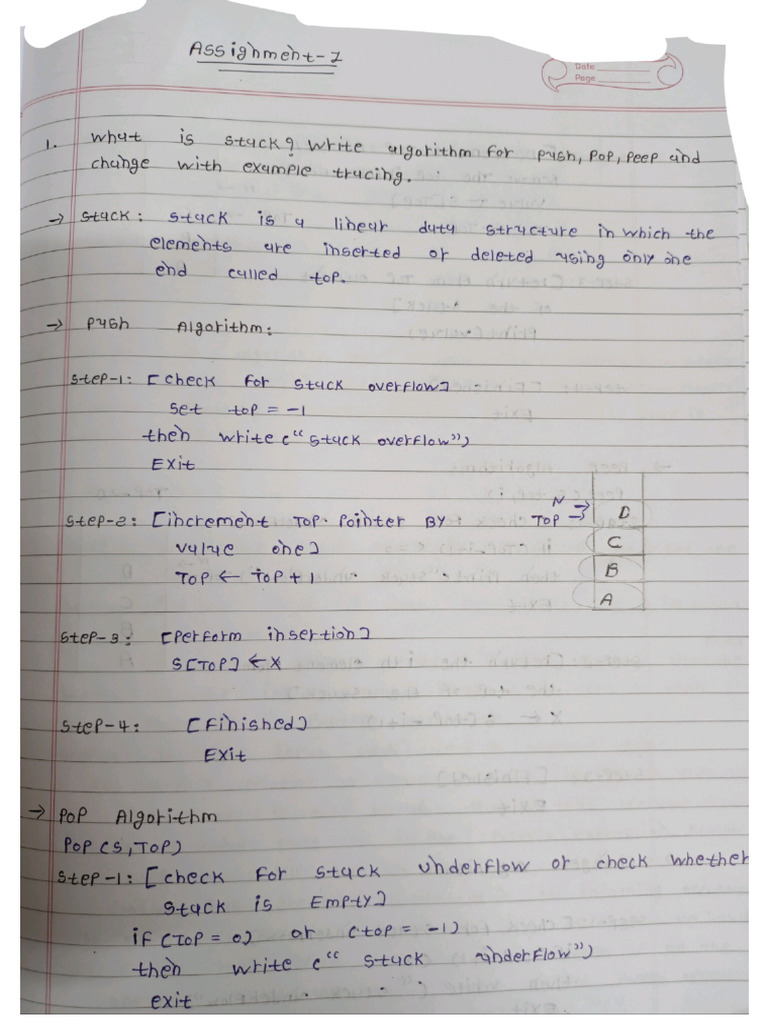 Assignment-1
Date
Page
1. What is stack? Write algorithm for push, pop, peep and
change with example tracing.
→ Stack: Stack is a linear data structure in which the
elements are inserted or deleted using only one
end called top.
→ Push Algorithm:
Step-1: [Check for stack overflow]
set top = -1
then write ("Stack overflow")
Exit
Step-2: [increment TOP pointer BY
value one]
TOP ← TOP + 1
N
TOP → D
C
B
A
Step-3: [Perform insertion]
S[TOP] ← X
Step-4: [Finished]
Exit
→ POP Algorithm
POP (S, TOP)
Step-1: [check for stack underflow or check whether
stack is Empty]
if (TOP = 0) or (top = -1)
then write (" stack underflow")
exit